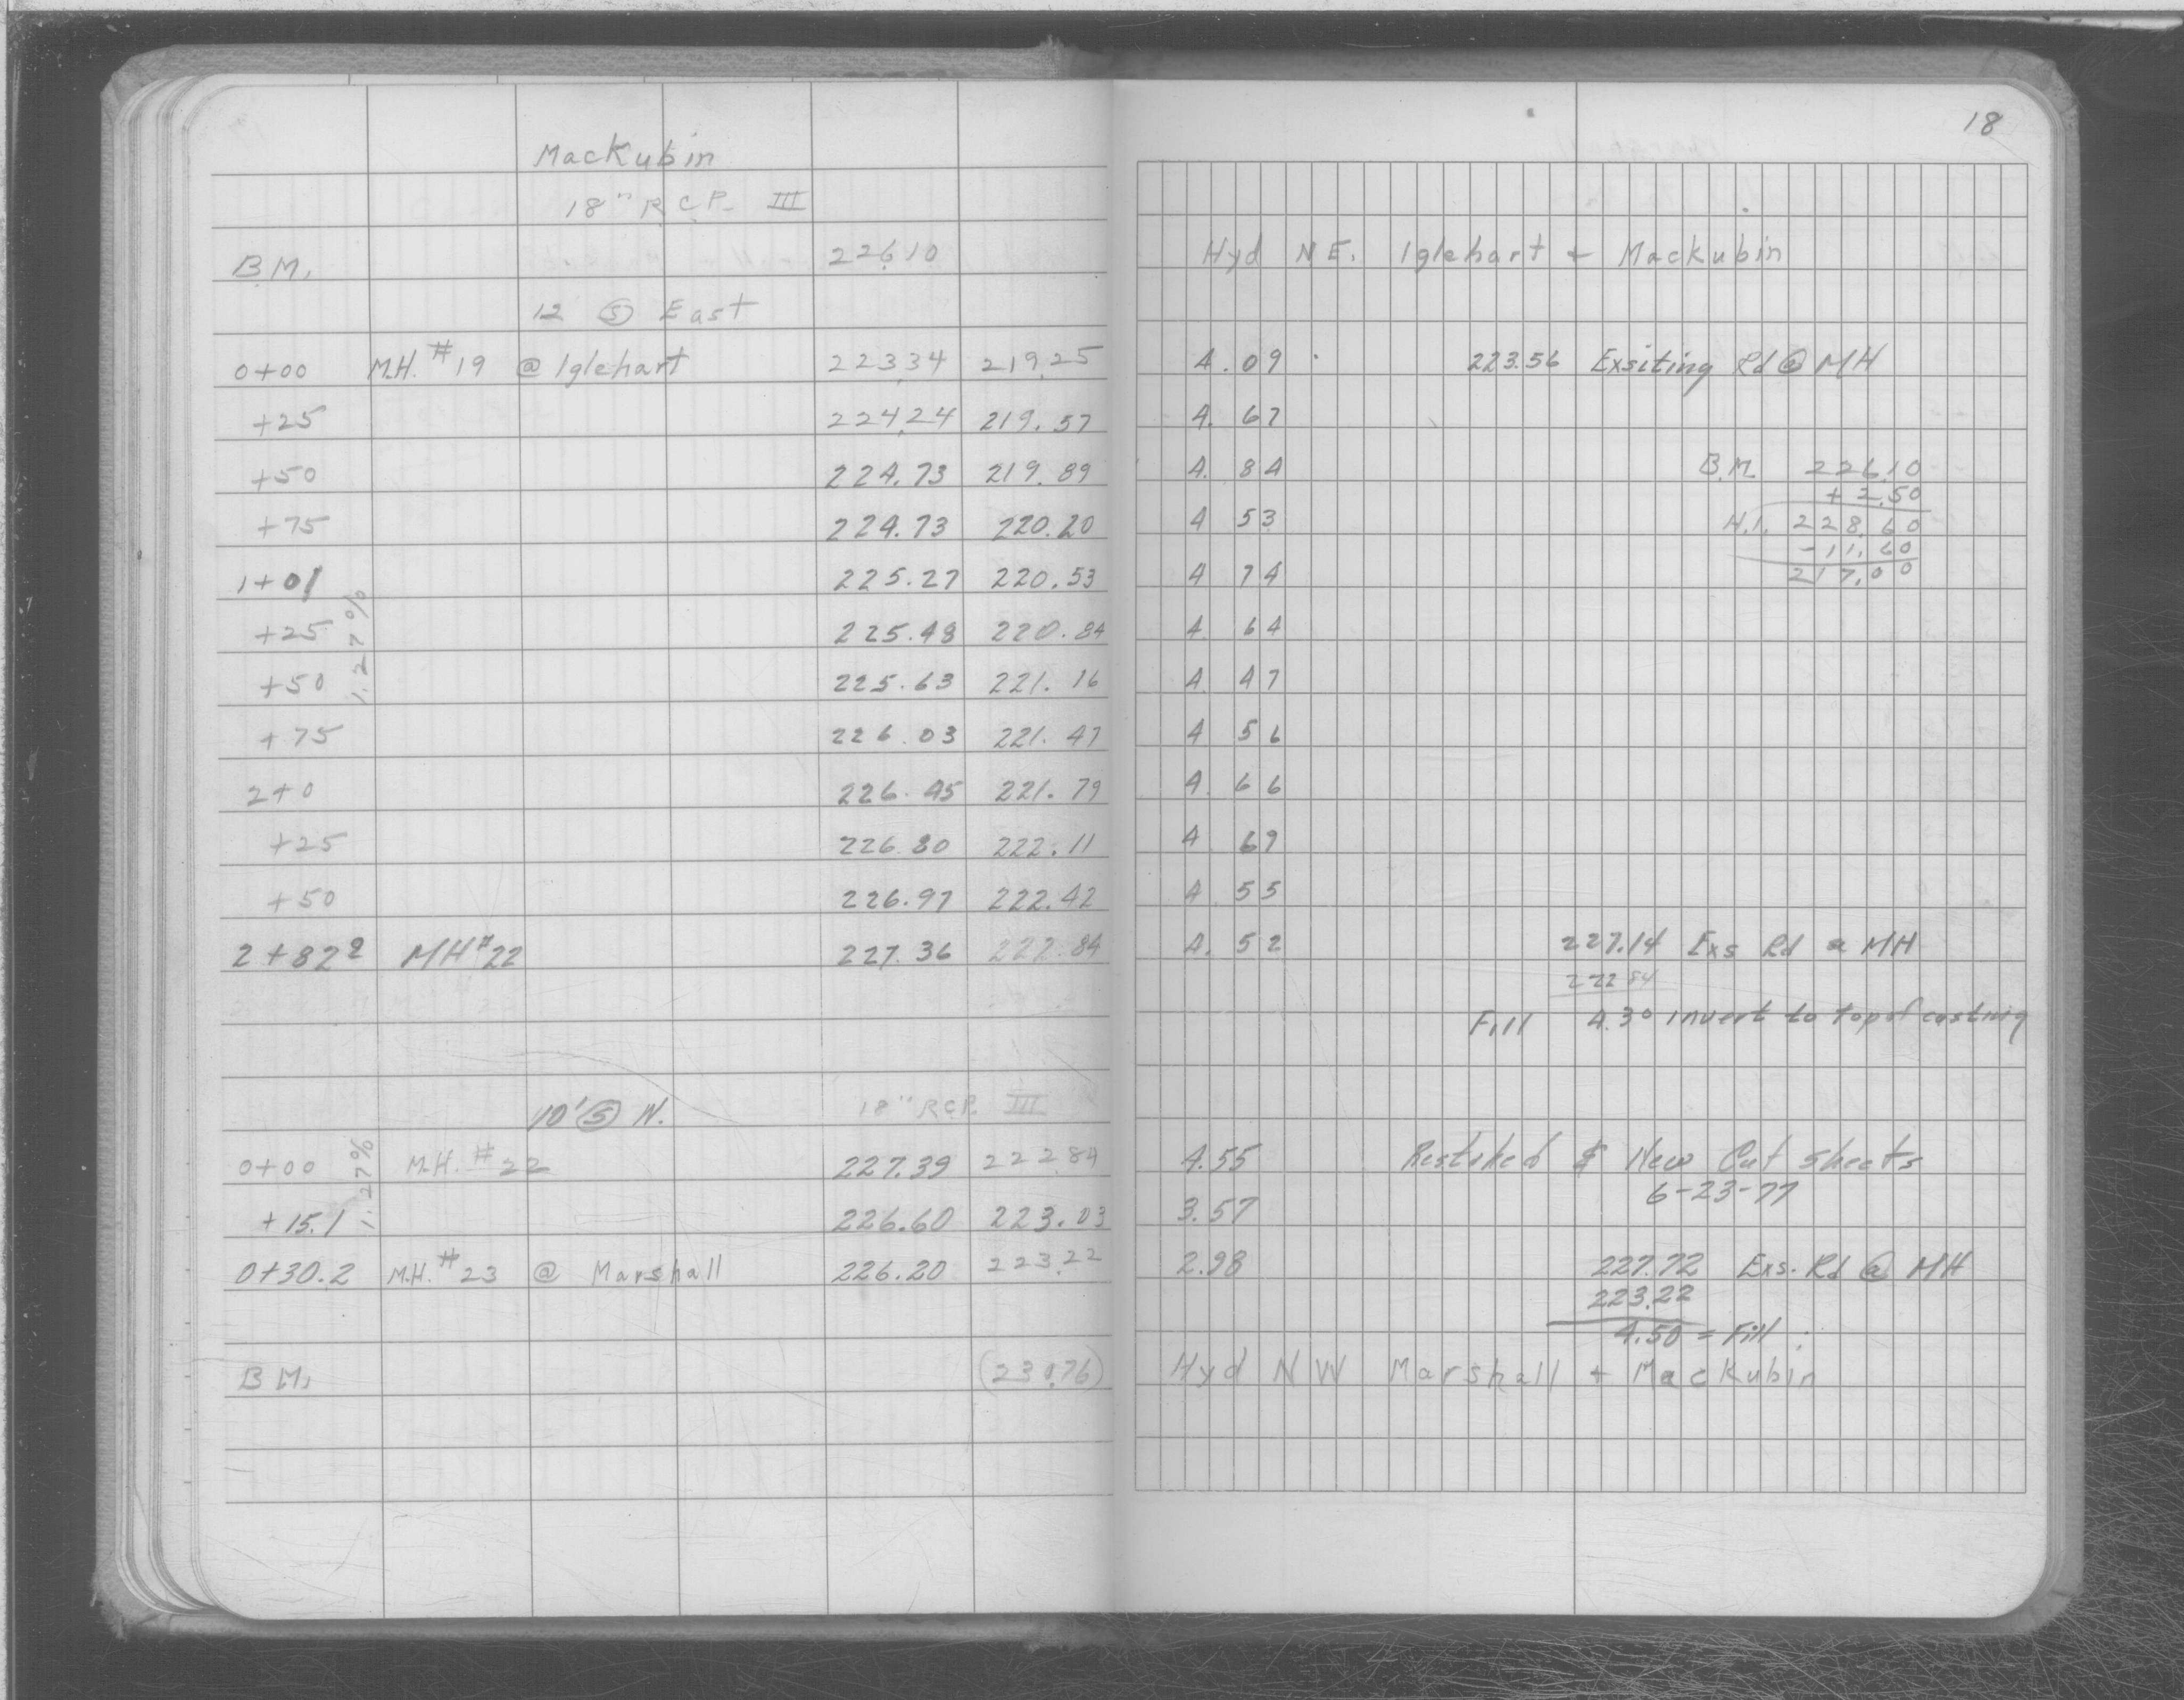 18
MacKubin
18" R.C.P. III
B.M. 226.10 Hyd N.E. Iglehart + Mackubin
12 Ⓢ East
0+00 M.H. #19 @ Iglehart 223.34 219.25 4.09 223.56 Exsiting Rd @ MH
+25 224.24 219.57 4.67
+50 224.73 219.89 4.84 B.M. 226.10
+ 2.50
+75 224.73 220.20 4 53 H.I. 228.60
- 11.60
1+01 225.27 220.53 4 74 217.00
+25 225.48 220.84 4 64
1.27%
+50 225.63 221.16 4.47
+75 226.03 221.47 4 56
2+0 226.45 221.79 4.66
+25 226.80 222.11 4 69
+50 226.97 222.42 4 55
2+82⁹ MH #22 227.36 222.84 4.52 227.14 Exs Rd @ MH
222 84
Fill 4.30 invert to top of casting
10' Ⓢ N. 18" RCP. III
0+00 M.H. #22 227.39 222.84 4.55 Restaked & New Cut Sheets
1.27% 6-23-77
+15.1 226.60 223.03 3.57
0+30.2 M.H. #23 @ Marshall 226.20 223.22 2.98 227.72 Exs. Rd @ MH
223.22
4.50 = Fill
B M. (230.76) Hyd N W Marshall + MacKubin